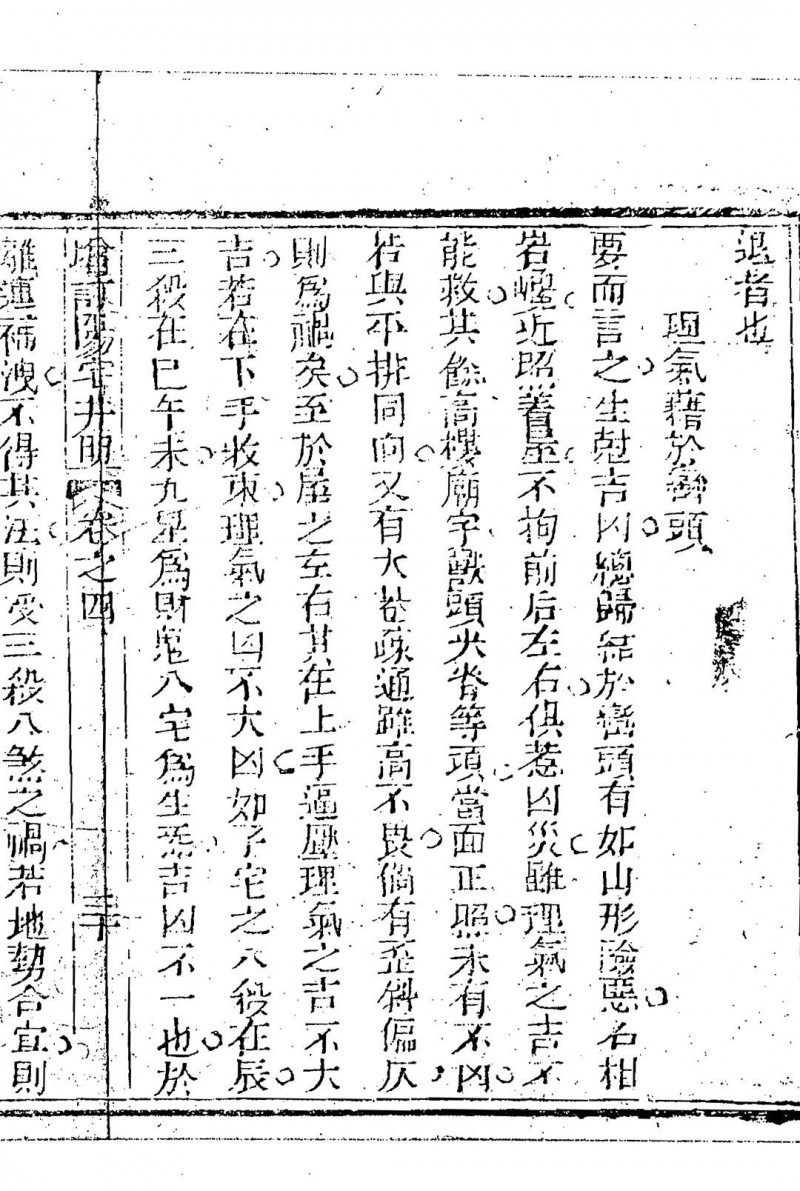 退者也
理氣藉於巒頭
要而言之生尅吉凶總歸結於巒頭有如山形險惡名相
岩巉近照着量不拘前后左右俱惹凶災雖理氣之吉不
能救其餘高樓廟宇獸頭尖脊等頭當面正照未有不凶
若與不排同向又有大巷疎通雖高不畏倘有歪斜偏仄
則爲禍矣至於屋之左右其在上手逼壓理氣之吉不大
吉若在下手收束理氣之凶不大凶如子宅之八殺在辰
三殺在巳午未九星爲財鬼八宅爲生炁吉凶不一也於
增訂陽宅井明 卷之四 三十
離運補洩不得其法則受三殺八煞之禍若地勢合宜則